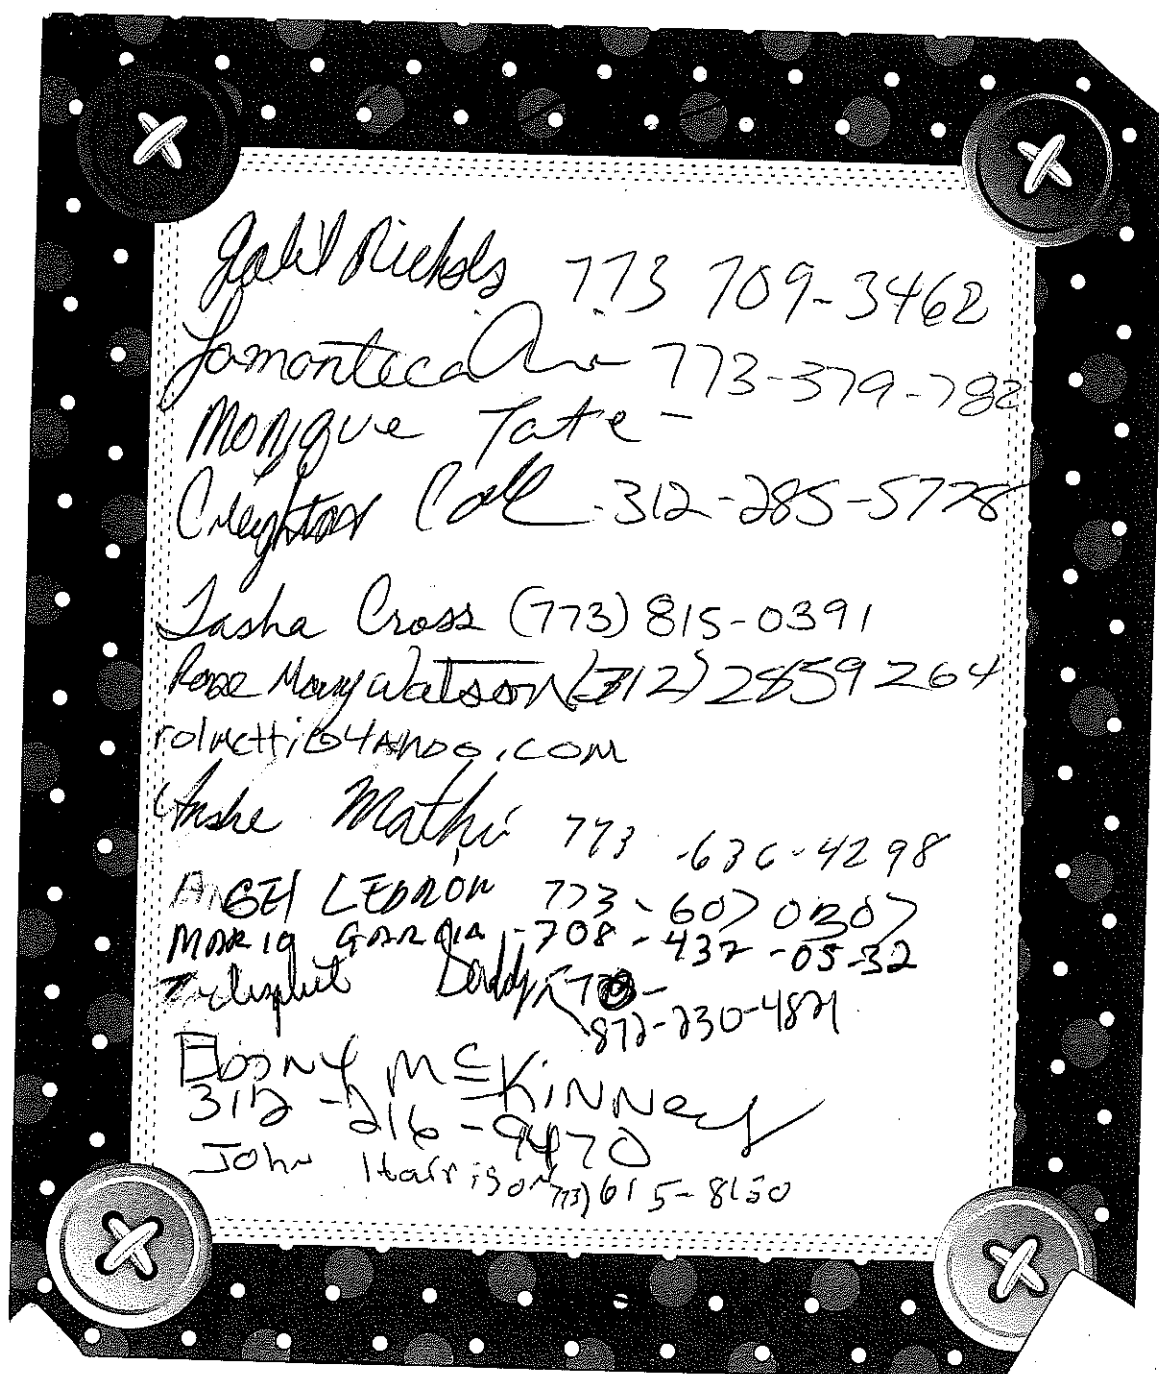 Nichols 773 709-3462
773-379-782
Monique Tate -
Creighton 312-285-5778
Tasha Cross (773) 815-0391
Rose Mary Watson (312) 2859264
773-636-4298
ANGEl LEBRON 773-607 0307
MARIA GARCIA -708-437-05-32
Daddy
872-230-4821
Ebony McKinney
312-216-9470
John Harrison 773) 615-8150